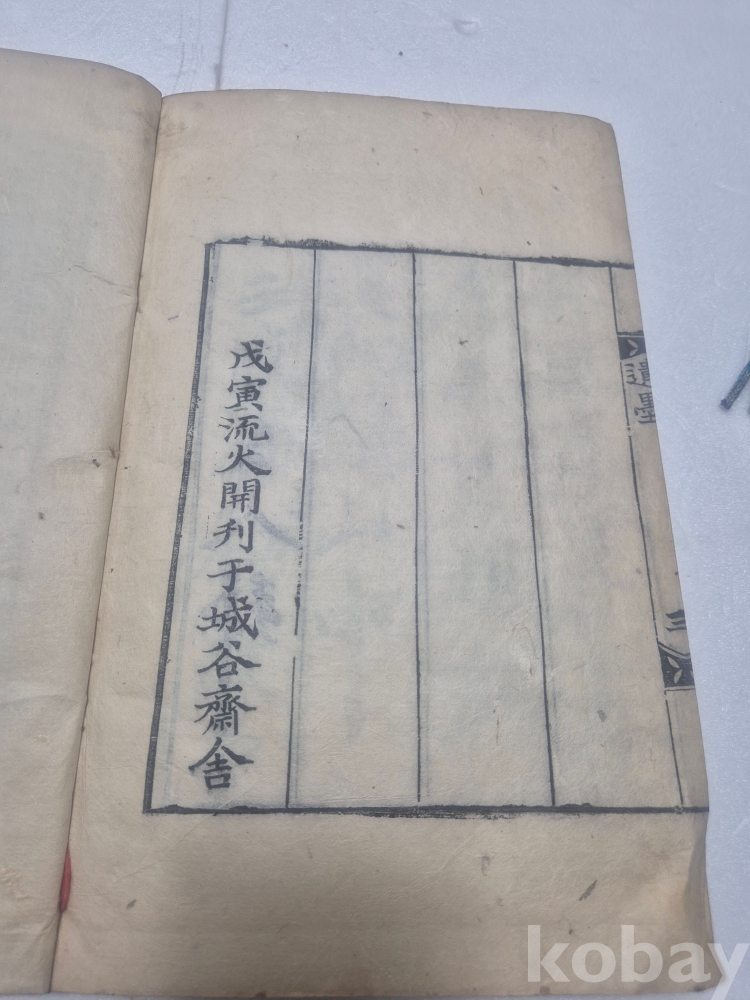 遺墨
三
戊寅流火開刊于城谷齋舍
kobay